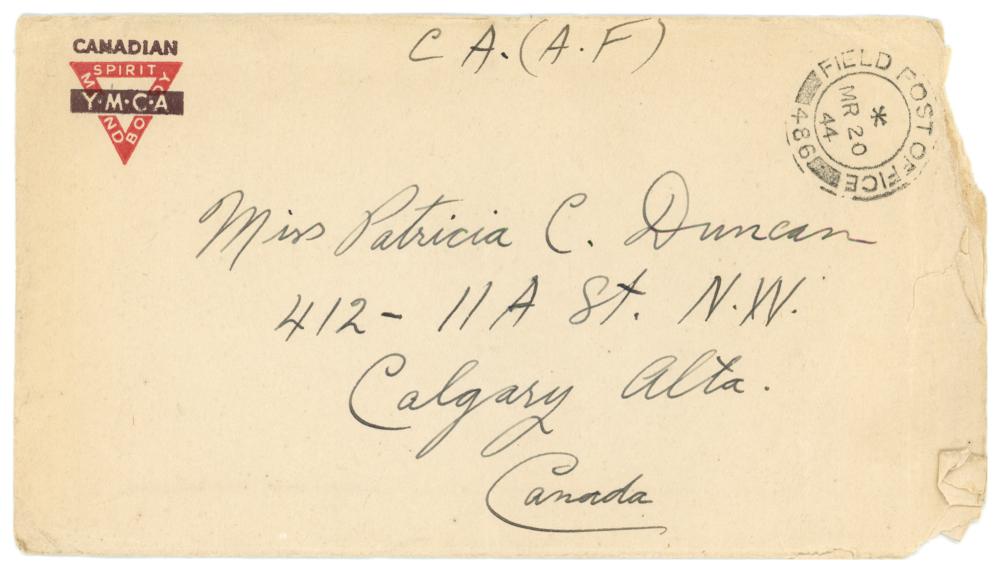 CANADIAN
SPIRIT
MIND
BODY
Y·M·C·A
C A. (A.F)
FIELD POST OFFICE
486
*
MR 20
44
Miss Patricia C. Duncan
412 - 11 A St. N.W.
Calgary Alta.
Canada